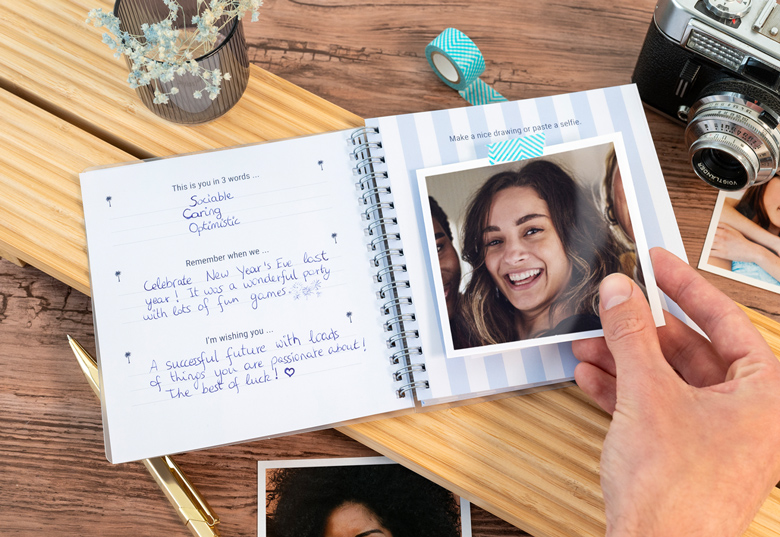 This is you in 3 words ...
Sociable
Caring
Optimistic
Remember when we ...
Celebrate New Year's Eve last
year! It was a wonderful party
with lots of fun games.
I'm wishing you ...
A successful future with loads
of things you are passionate about!
The best of luck! ♡
Make a nice drawing or paste a selfie.
VOIGTLÄNDER